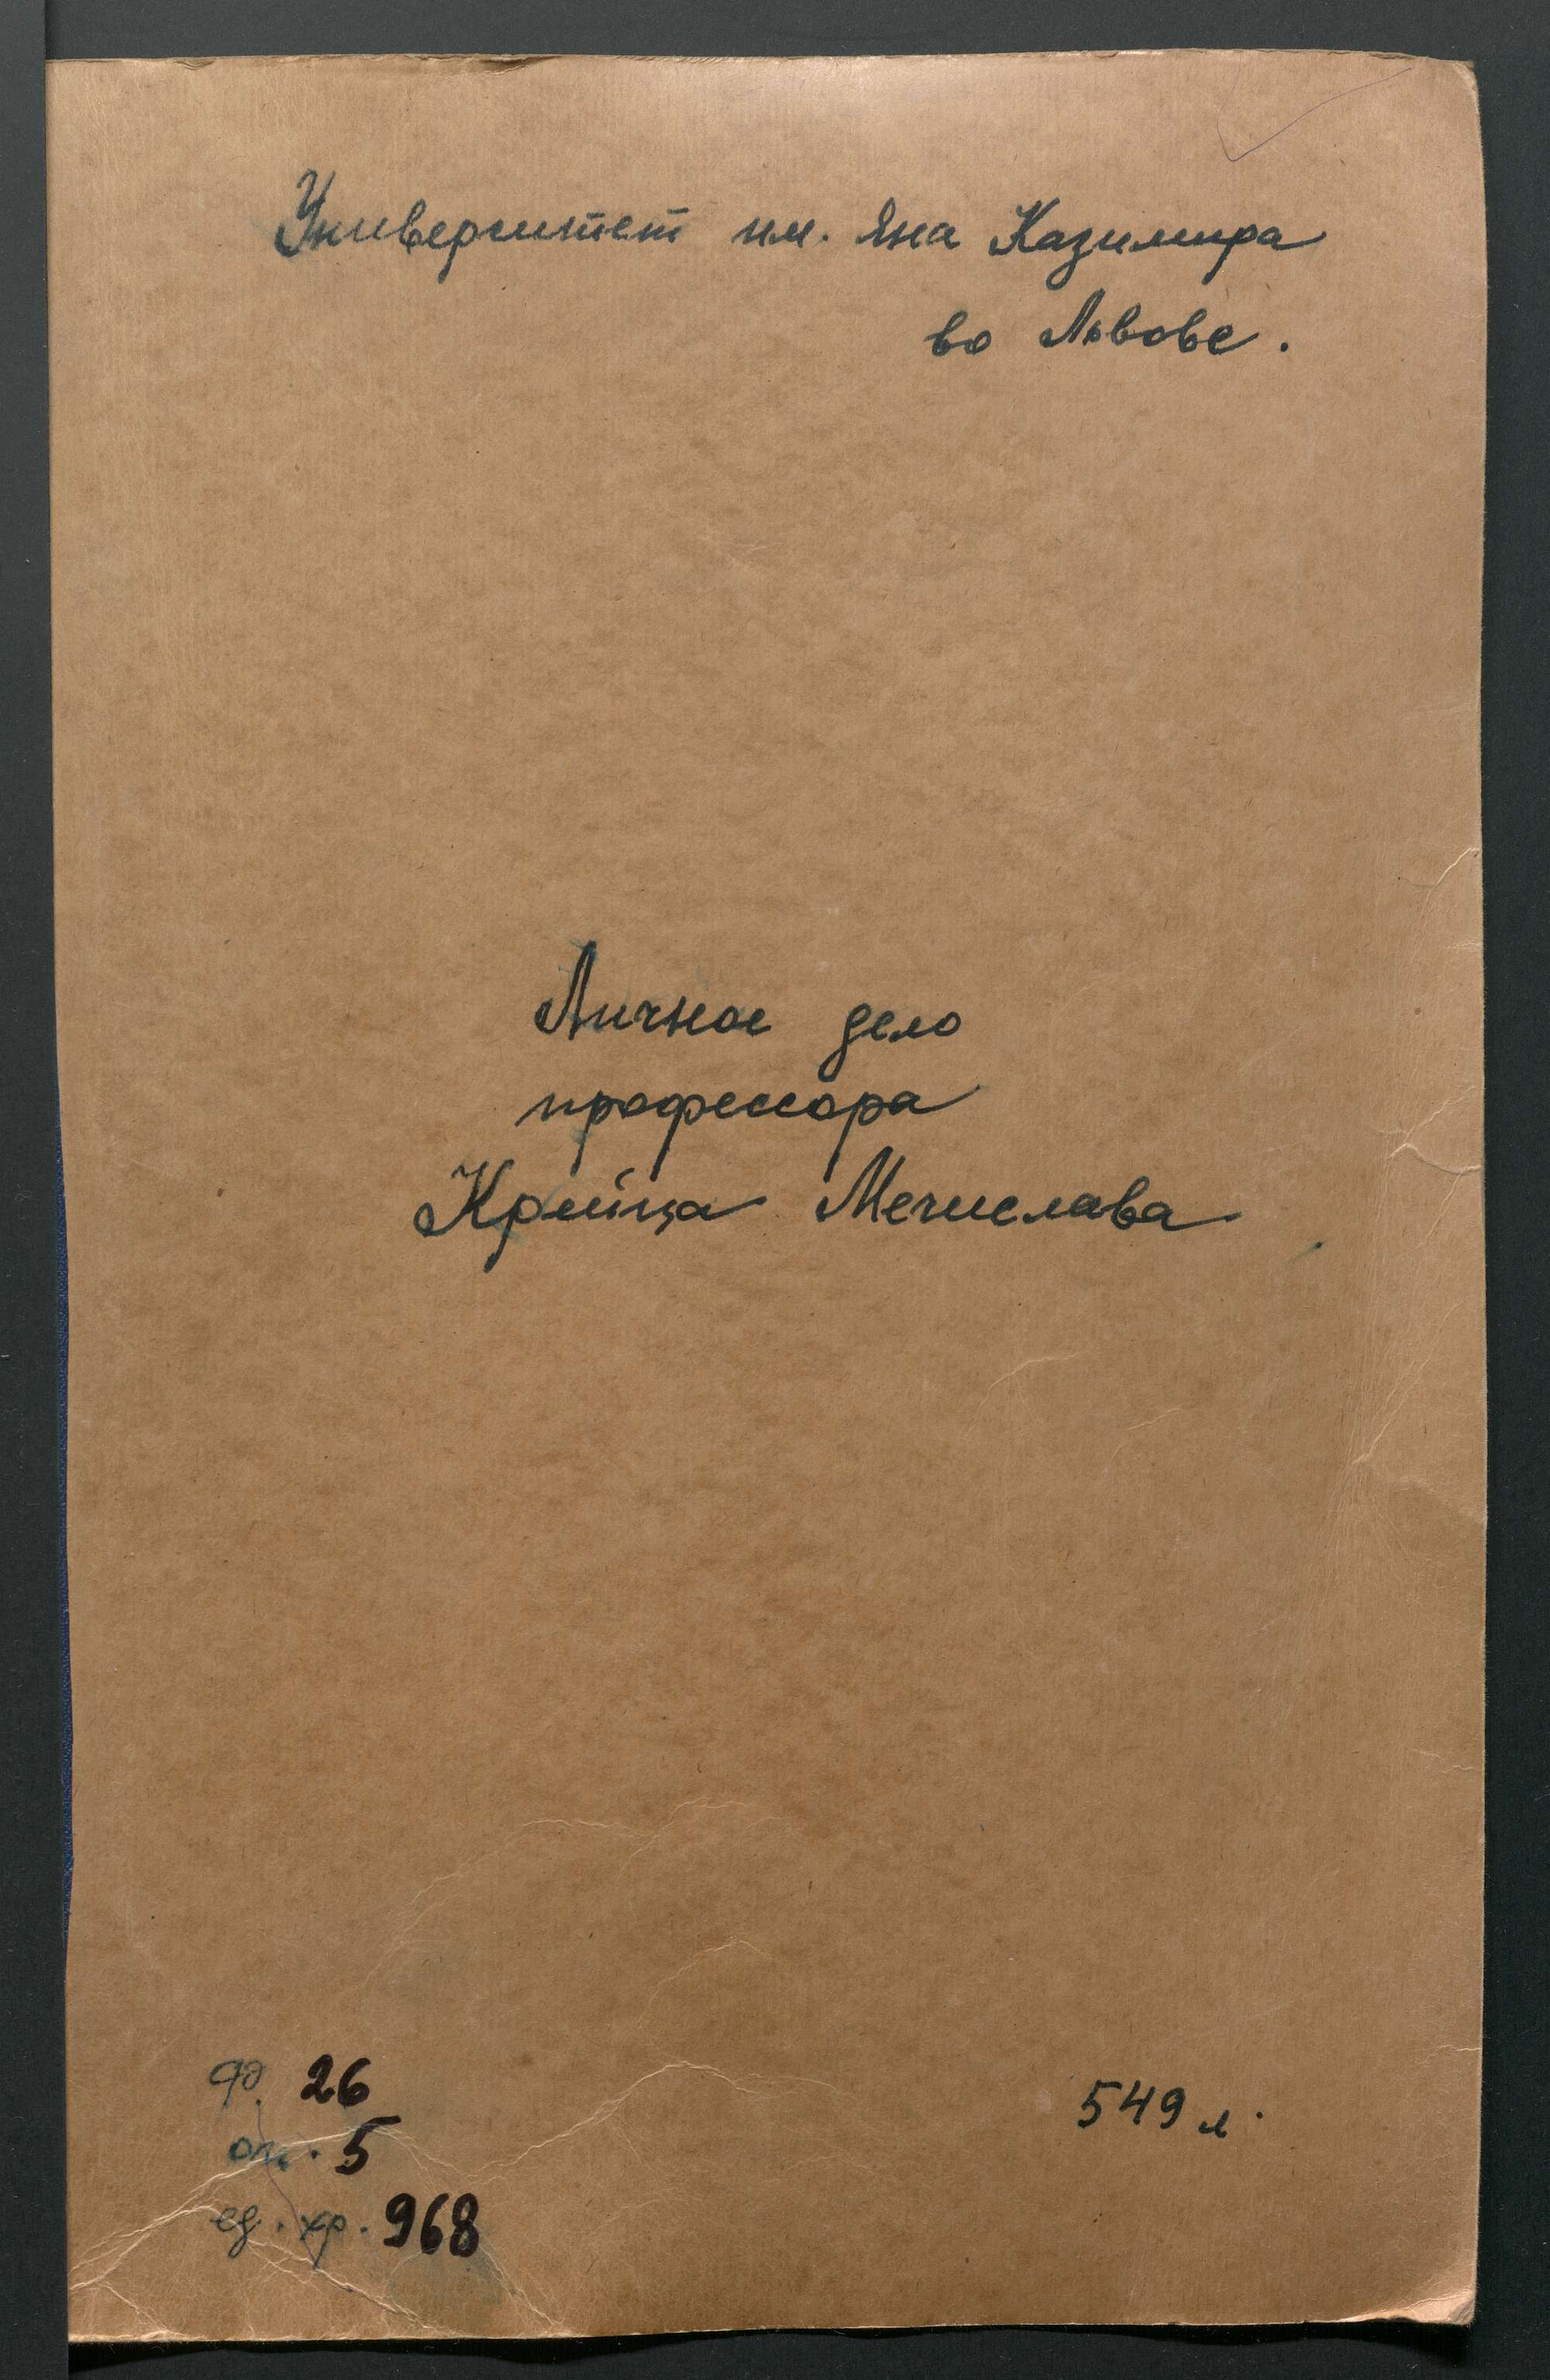 Университет им. Яна Казимира
во Львове.
Личное дело
профессора
Крейца Мечислава
ф. 26
оп. 5
ед. хр. 968
549 л.